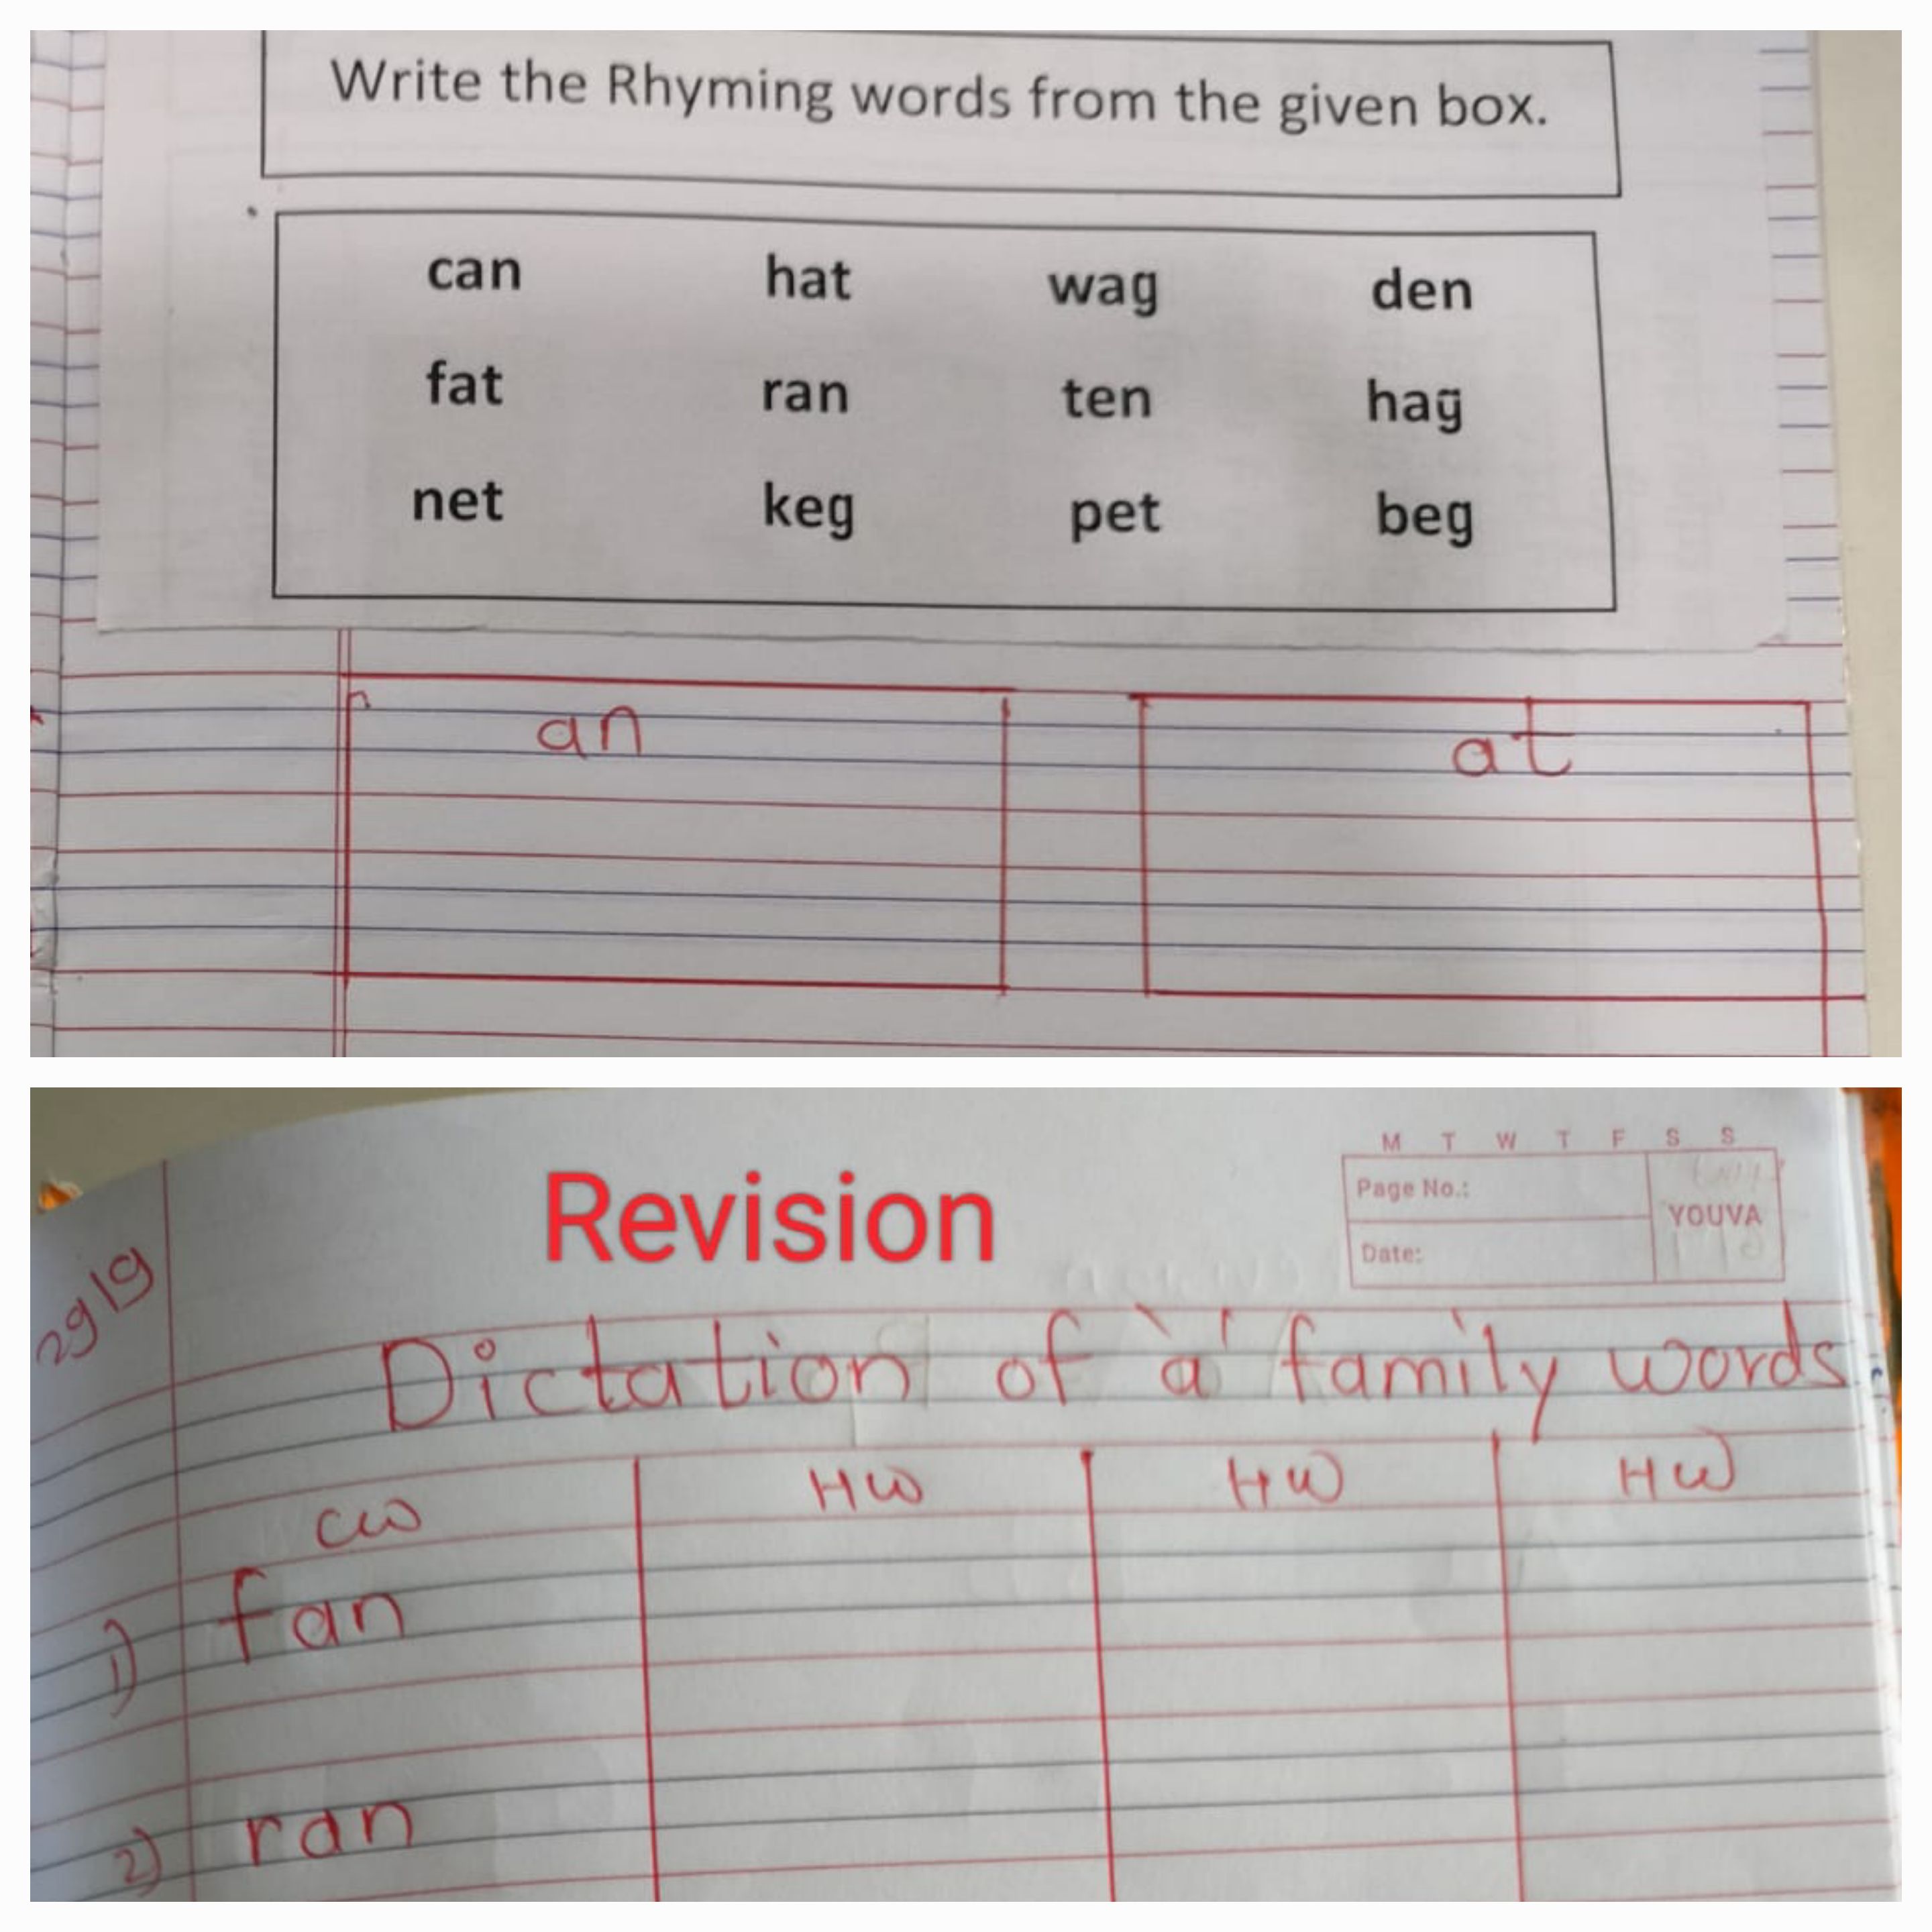 Write the Rhyming words from the given box.
can hat wag den
fat ran ten hag
net keg pet beg
an at
M T W T F S S
Revision
Page No.:
YOUVA
Date:
29/9
Dictation of 'a' family words
CW HW HW HW
1) fan
2) ran